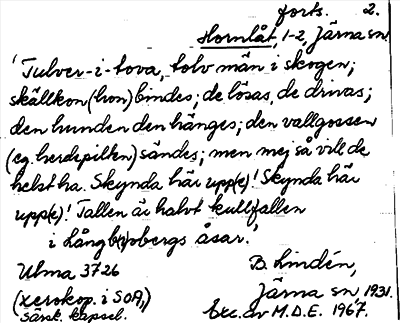 forts. 2.
Hornlåt, 1-2, Järna sn
'Tulver-i-tova, tolv män i skogen;
skällkon (hon) bindes; de lösas, de drivas;
den hunden den hänges; den vallgossen
(eg. herdepilten) sändes; men mej så vill de
helst ha. Skynda här upp(e)! Skynda här
upp(e)! Tallen är halvt kullfallen
i Långb(r)obergs åsar.'
Ulma 3726
B. Lindén,
Järna sn, 1931.
(xerokop. i SOA,)
särsk. kapsel.
Exc. av M.D.E. 1967.